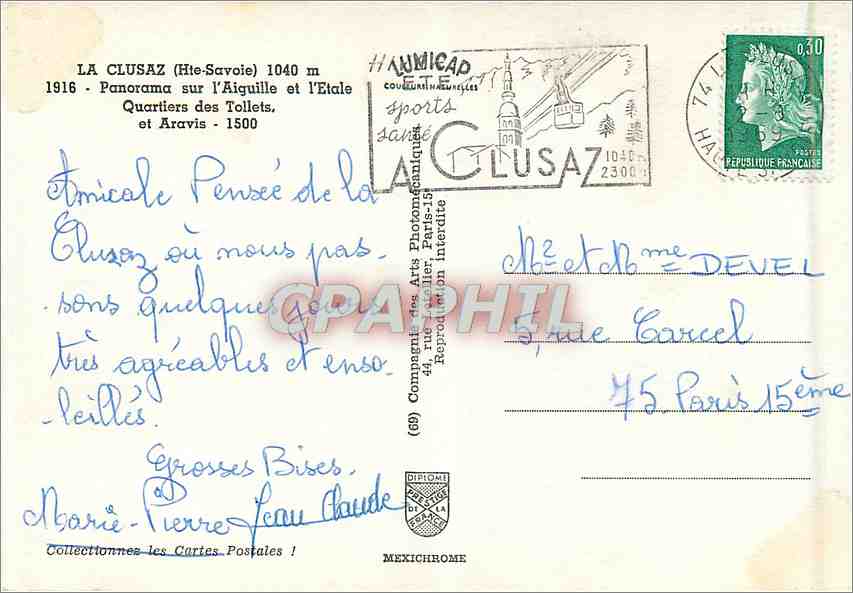 LA CLUSAZ (Hte-Savoie) 1040 m
1916 - Panorama sur l'Aiguille et l'Etale
Quartiers des Tollets,
et Aravis - 1500
LUMICAP
ETE
COULEURS NATURELLES
sports
santé
LA CLUSAZ
1040 m
2300 m
74 LA
HAUTE S.
0,30
POSTES
RÉPUBLIQUE FRANÇAISE
Amicale Pensée de la
Clusaz où nous pas-
-sons quelques jours
très agréables et enso-
-leillés.
Grosses Bises.
Marie-Pierre Jean Claude
Collectionnez les Cartes Postales !
(69) Compagnie des Arts Photomécaniques
44, rue Letellier, Paris-15
Reproduction Interdite
CPAPHIL
Mr et Mme DEVEL
5, rue Carcel
75. Paris 15ème
DIPLOME
PRESTIGE
DE LA
FRANCE
MEXICHROME